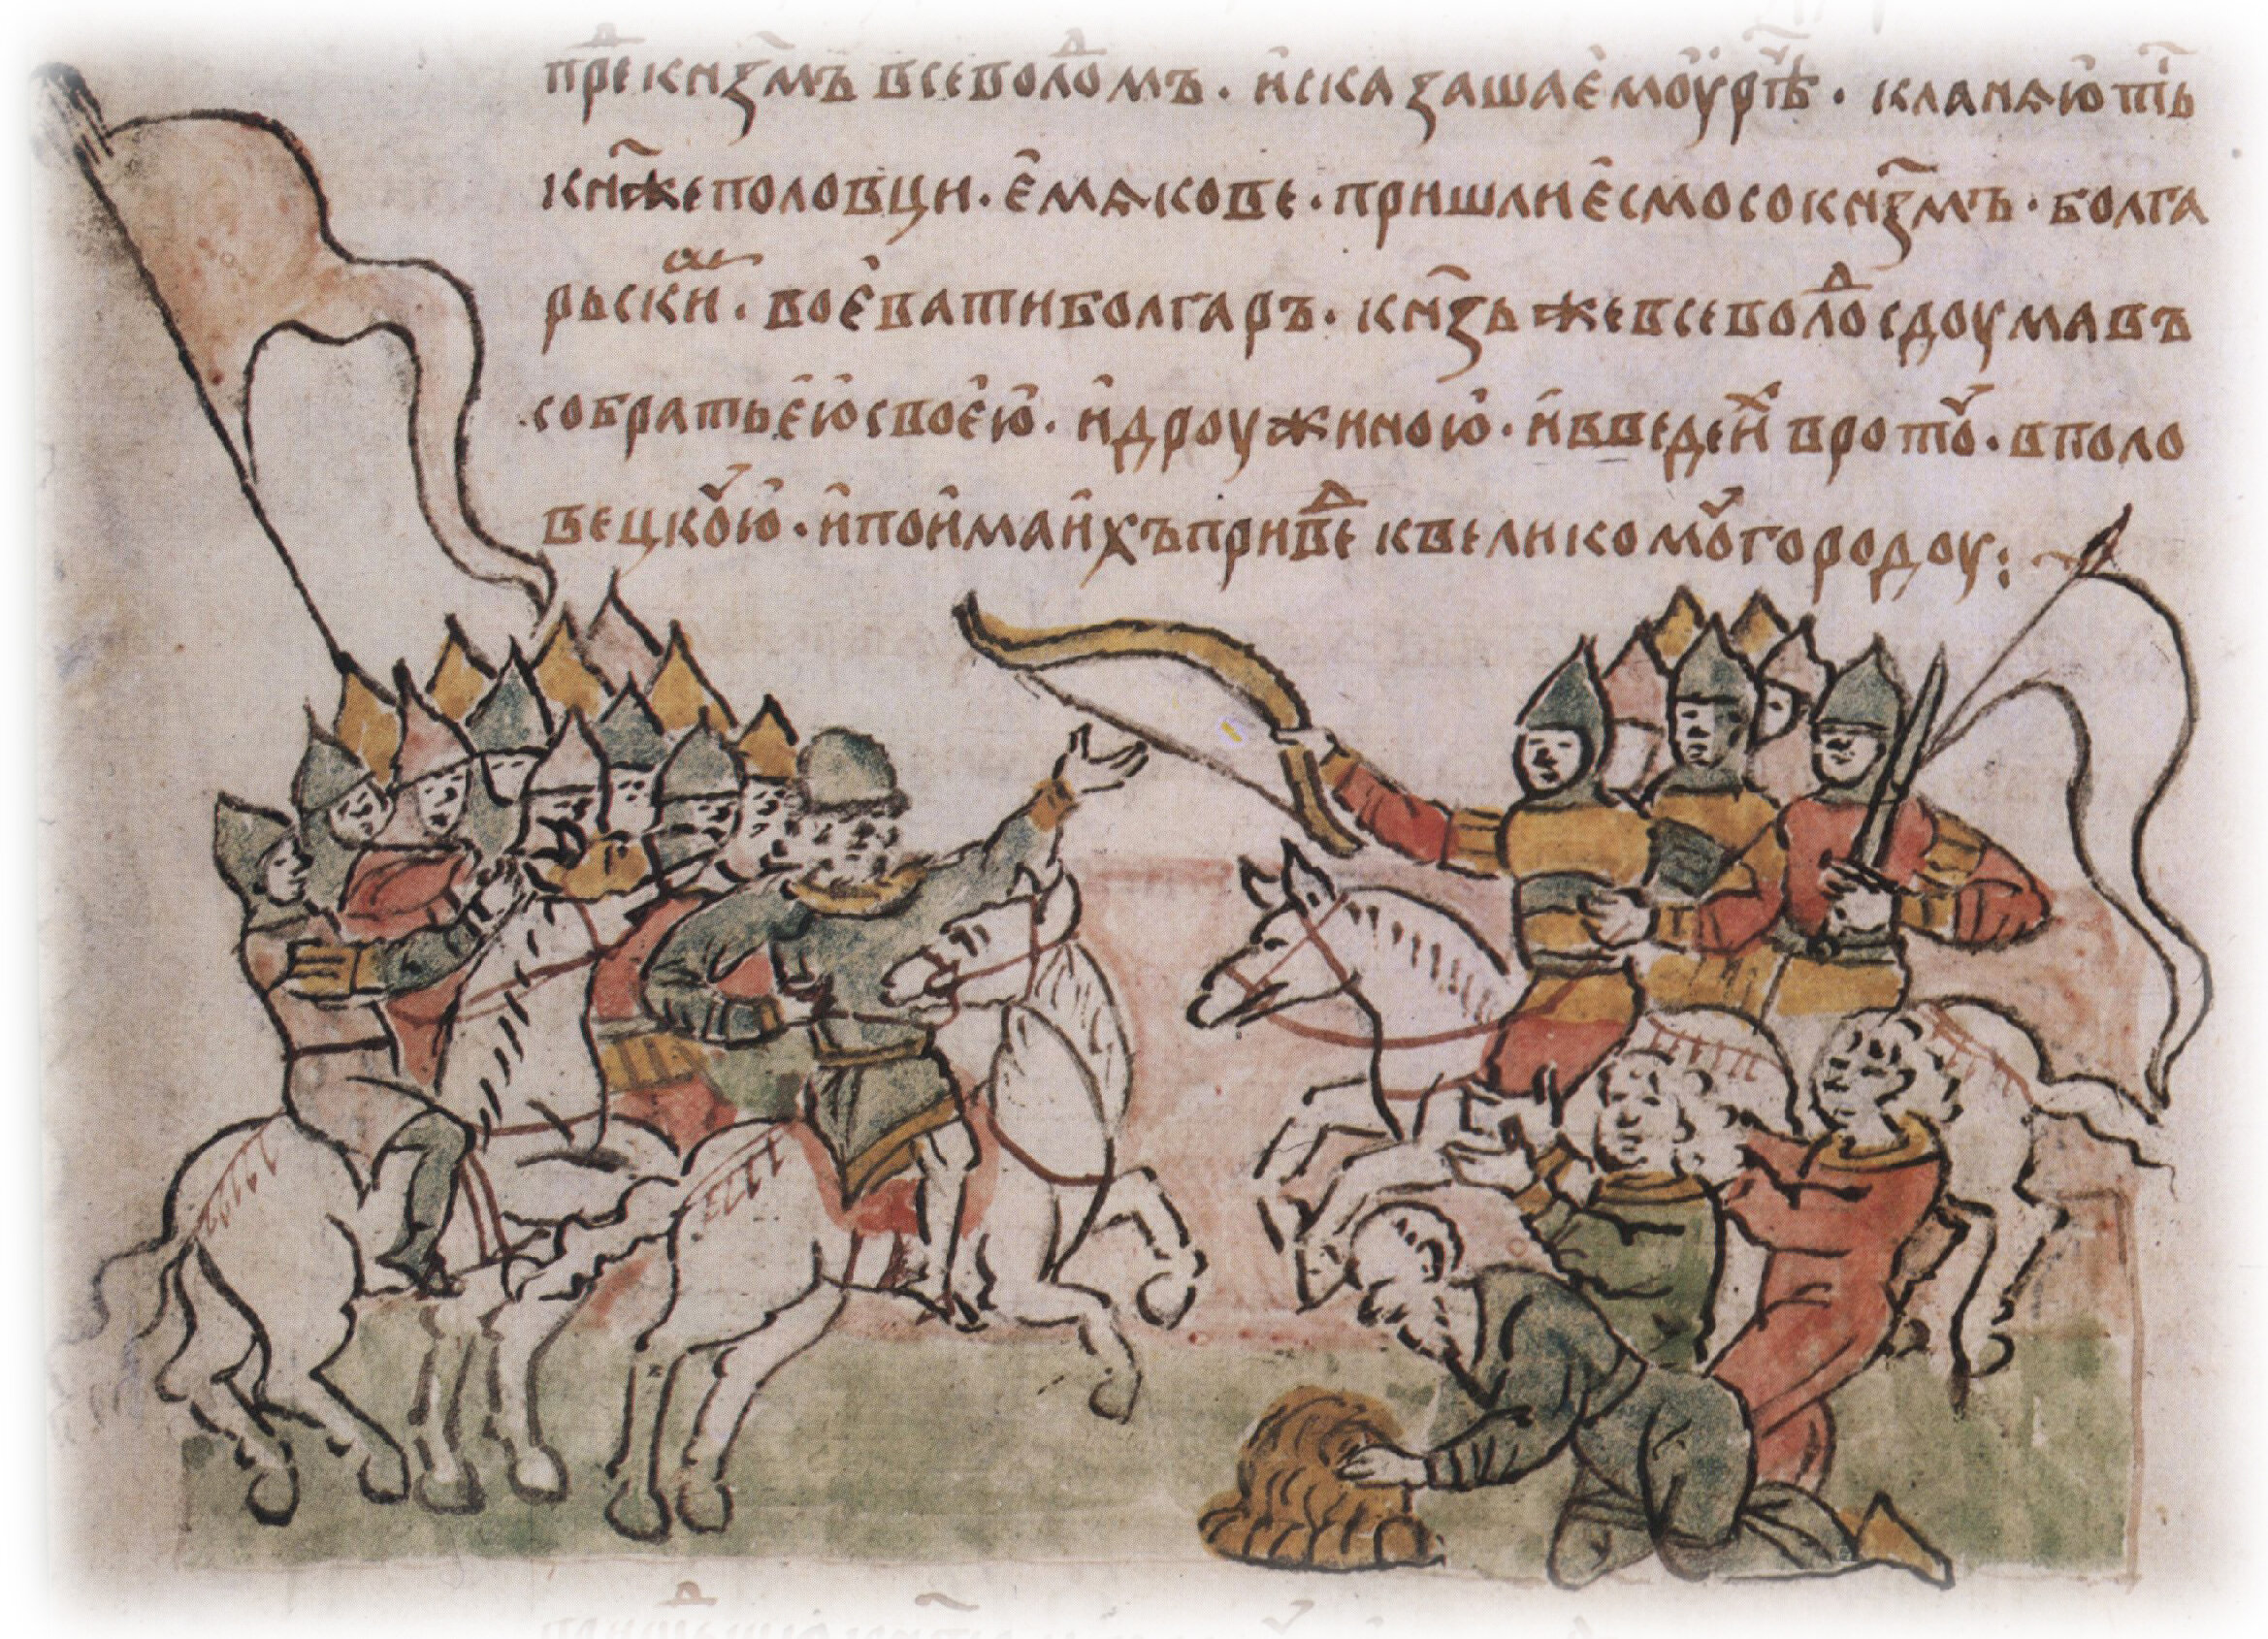 пре кнѧзмъ всеволодомъ · и сказаша емоу рѣ · кланѧють ти
кнѧже половци · емѧкове · пришли есмо со кнѧзмъ · болга
рьским · воевати болгаръ · кнѧзь же всеволод сдоумавъ
со братьею своею · и дроужиною · и введе их в ротоу · в поло
вецкоую · и поима ихъ приде к великомоу городоу :